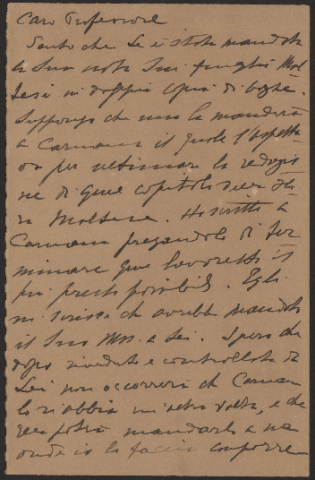 Caro Professore
Sento che Le è stata mandata
la Sua nota sui funghi
in doppia copia di bozze.
Suppongo che una la manderà
a Carmana il quale l'aspetta
per ultimar la redazio
ne di quel capitolo
Ho scritto a
Carmana pregandolo di ter
minare quel lavoretto il
più presto possibile. Egli
mi scrisse che avrebbe mandato
il Suo Mss. a Lei. Spero che
dopo riveduto e controllato da
Lei non occorrerà che Carman
lo riabbia un'altra volta, e che
Ella potrà mandarlo a me
onde io lo faccia comporre